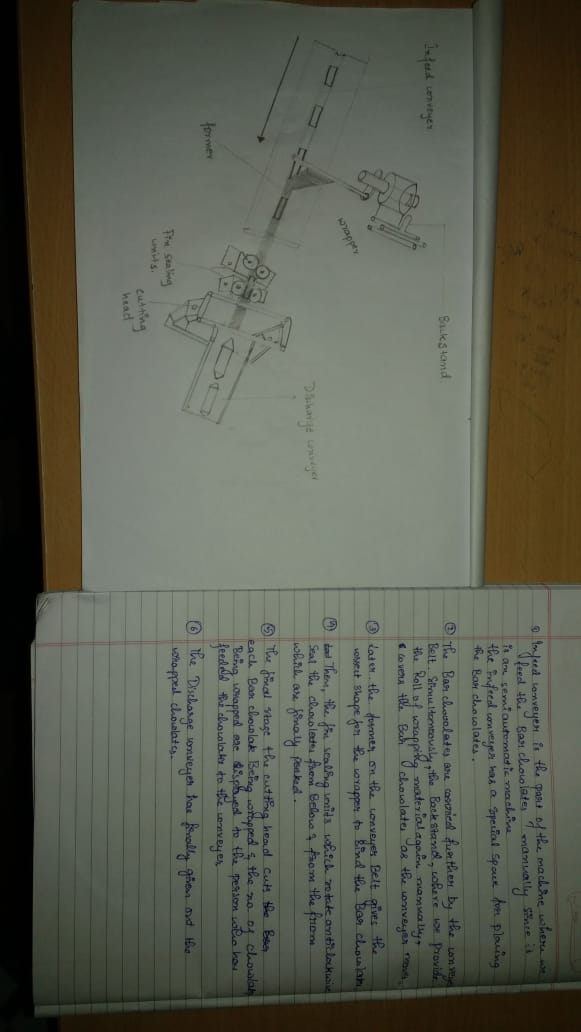 Infeed conveyer
Backstand
wrapper
Discharge conveyer
former
Fin sealing
units.
cutting
head
① Infeed conveyer is the part of the machine where we
feed the Bar chocolates manually since it
is an semiautomatic machine
the infeed conveyer has a special space for placing
the Bar chocolates.
② The Bar chocolates are carried further by the conveye
Belt. Simultaneously, the Backstand, where we provide
the Roll of wrapping material again manually,
covers the Bar chocolates as the conveyer moves.
③ Later the former on the conveyer Belt gives the
correct shape for the wrapper to bind the Bar chocolate
④ Then, the fin sealing units which rotate anticlockwise
seal the chocolates from Below & from the
which are finaly packed.
⑤ The final stage the cutting head cuts the
each Bar chocolate Being wrapped & the no. of chocolate
Being wrapped are displayed to the person who has
feeded the chocolates to the conveyer
⑥ The Discharge conveyer has finally given out the
wrapped chocolates.